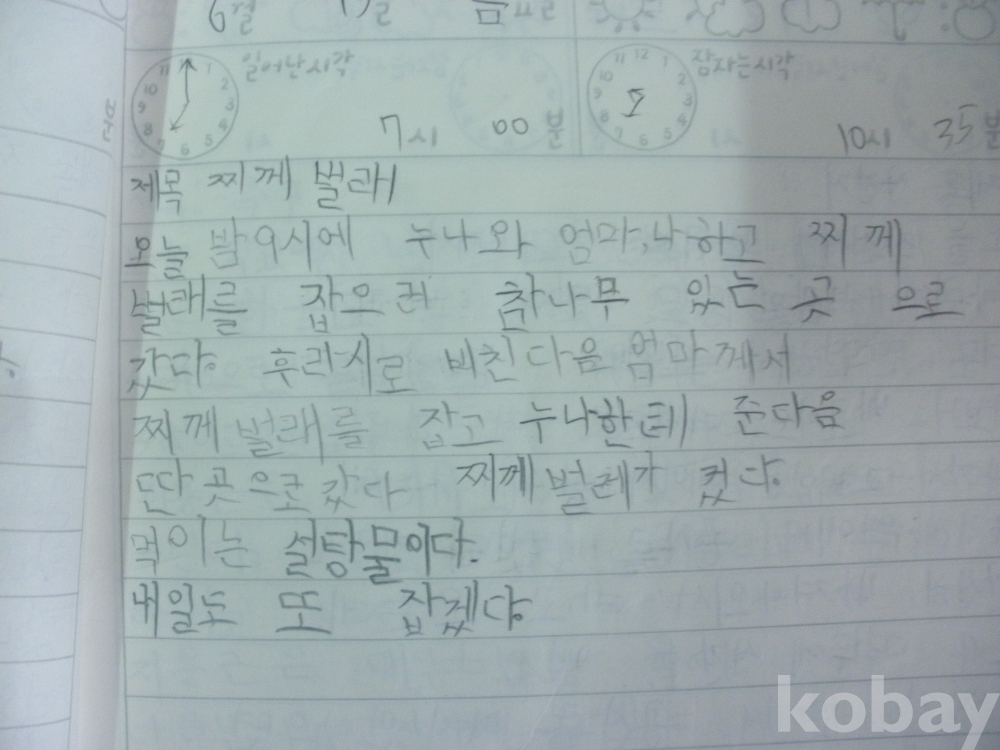 6월 일 금요일
일어난시각 잠자는시각
7시 00분 10시 35분
제목 찌께 벌래
오늘 밤 9시에 누나와 엄마,나하고 찌께
벌래를 잡으러 참나무 있는 곳 으로
갔다. 후라시로 비친다음 엄마께서
찌께 벌래를 잡고 누나한테 준다음
딴 곳으로 갔다 찌께 벌레가 컸다.
먹이는 설탕물이다.
내일도 또 잡겠다.
kobay